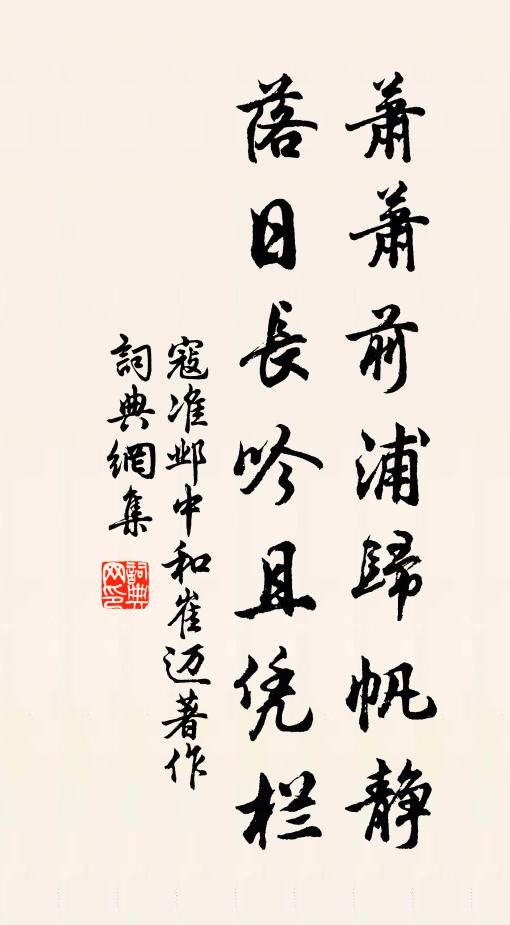 蕭蕭前浦歸帆静
落日長吟且凭栏
寇准邺中和崔迈著作
詞典網集
詞典网印